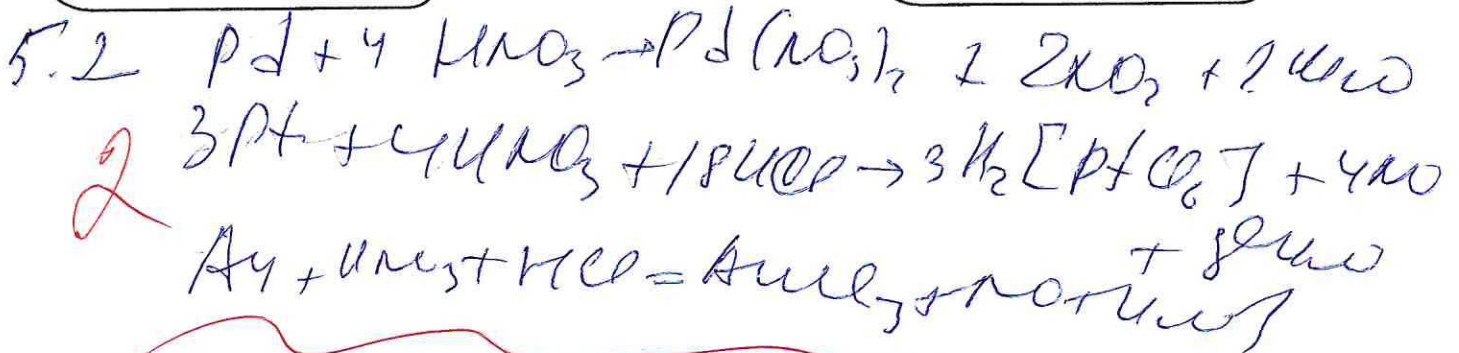 5.2 Pd + 4 HNO3 → Pd(NO3)2 + 2NO2 + 2H2O
2 3Pt + 4HNO3 + 18HCl → 3H2[PtCl6] + 4NO
+ 8H2O
Au + HNO3 + HCl = AuCl3 + NO + H2O